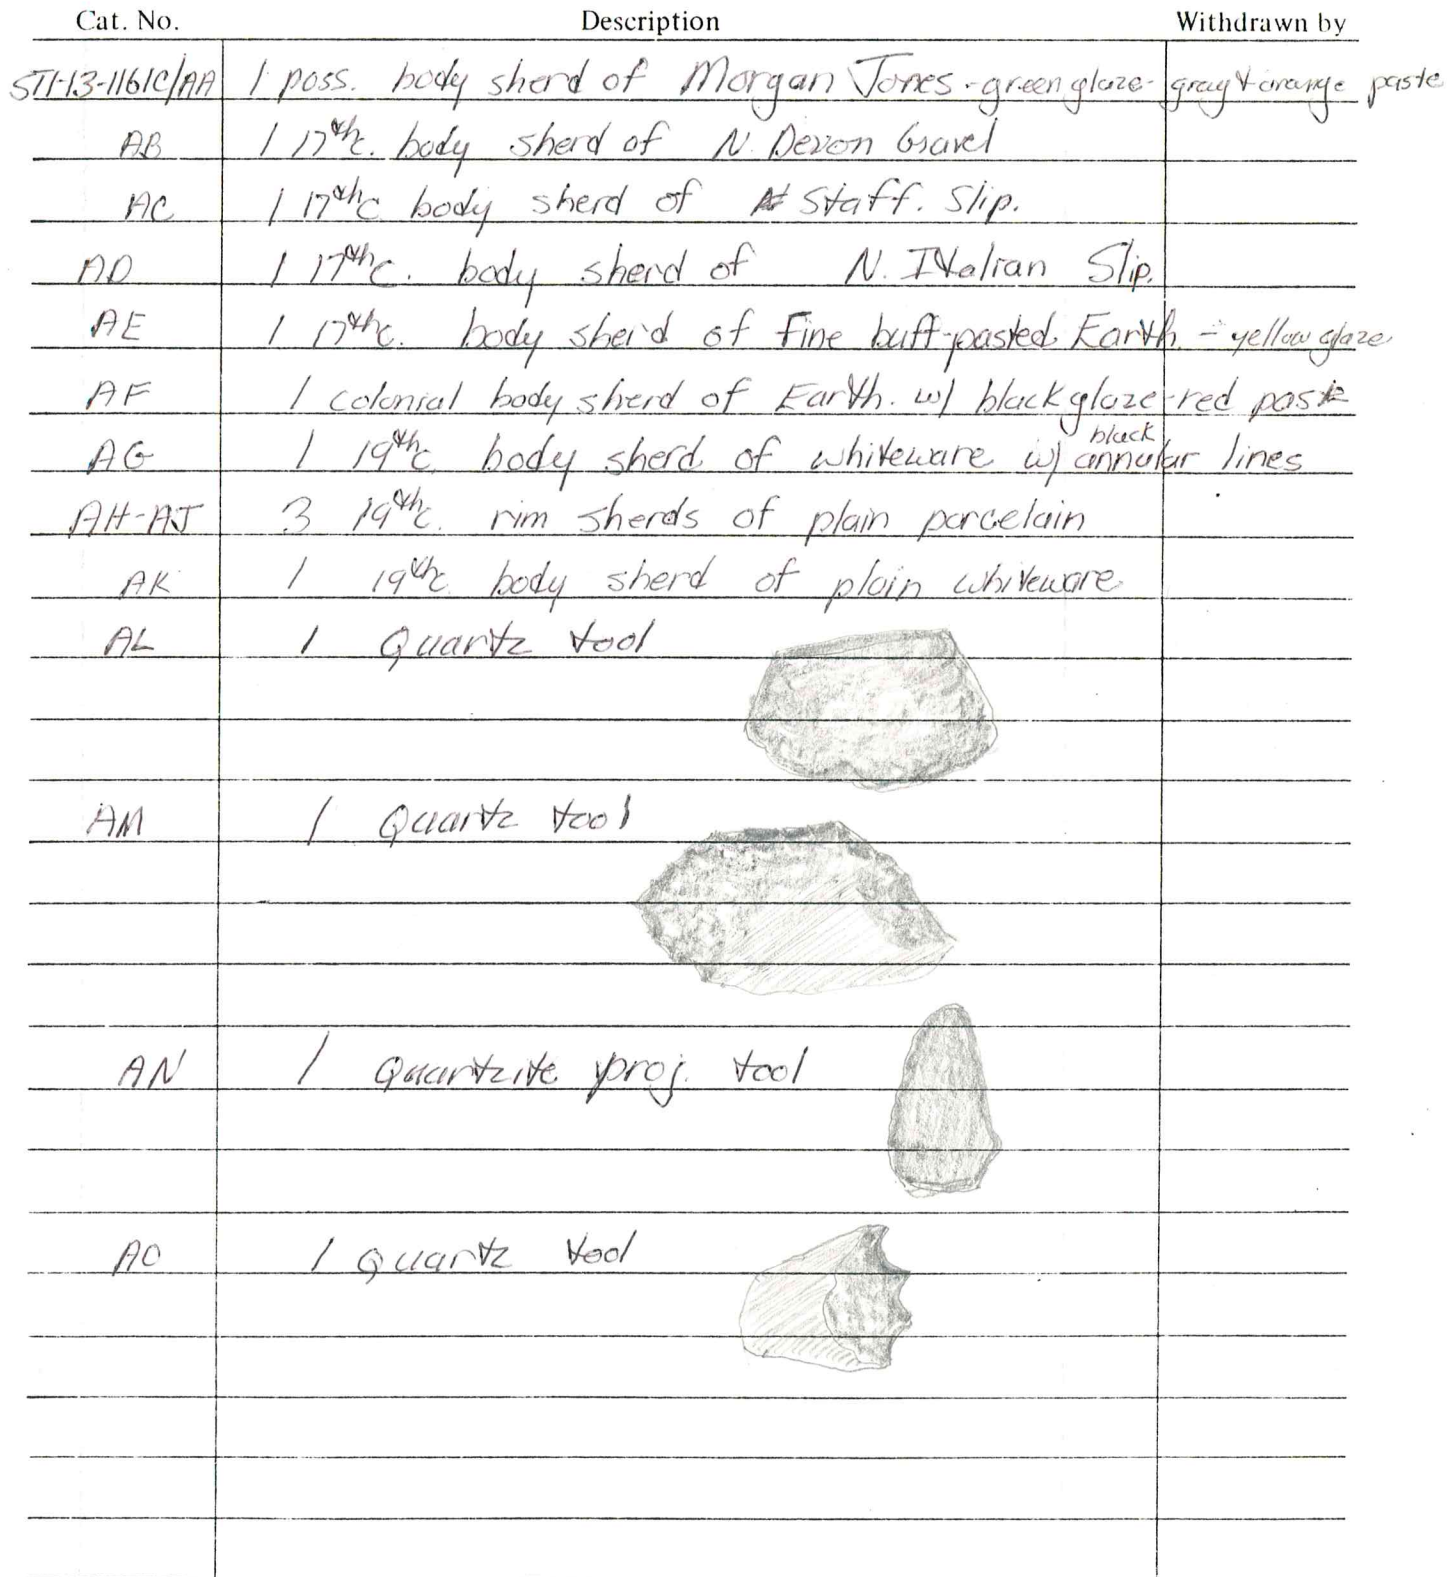 Cat. No. Description Withdrawn by
ST1-13-1161C/AA 1 poss. body sherd of Morgan Jones - green glaze - gray + orange paste
AB 1 17th c. body sherd of N. Devon Gravel
AC 1 17th c body sherd of Staff. Slip.
AD 1 17th c. body sherd of N. Italian Slip.
AE 1 17th c. body sherd of Fine buff-pasted Earth. - yellow glaze
AF 1 colonial body sherd of Earth. w/ black glaze - red paste
AG 1 19th c. body sherd of whiteware w/ black annular lines
AH-AJ 3 19th c. rim sherds of plain porcelain
AK 1 19th c. body sherd of plain whiteware
AL 1 Quartz tool
AM 1 Quartz tool
AN 1 Quartzite proj. tool
AO 1 Quartz tool